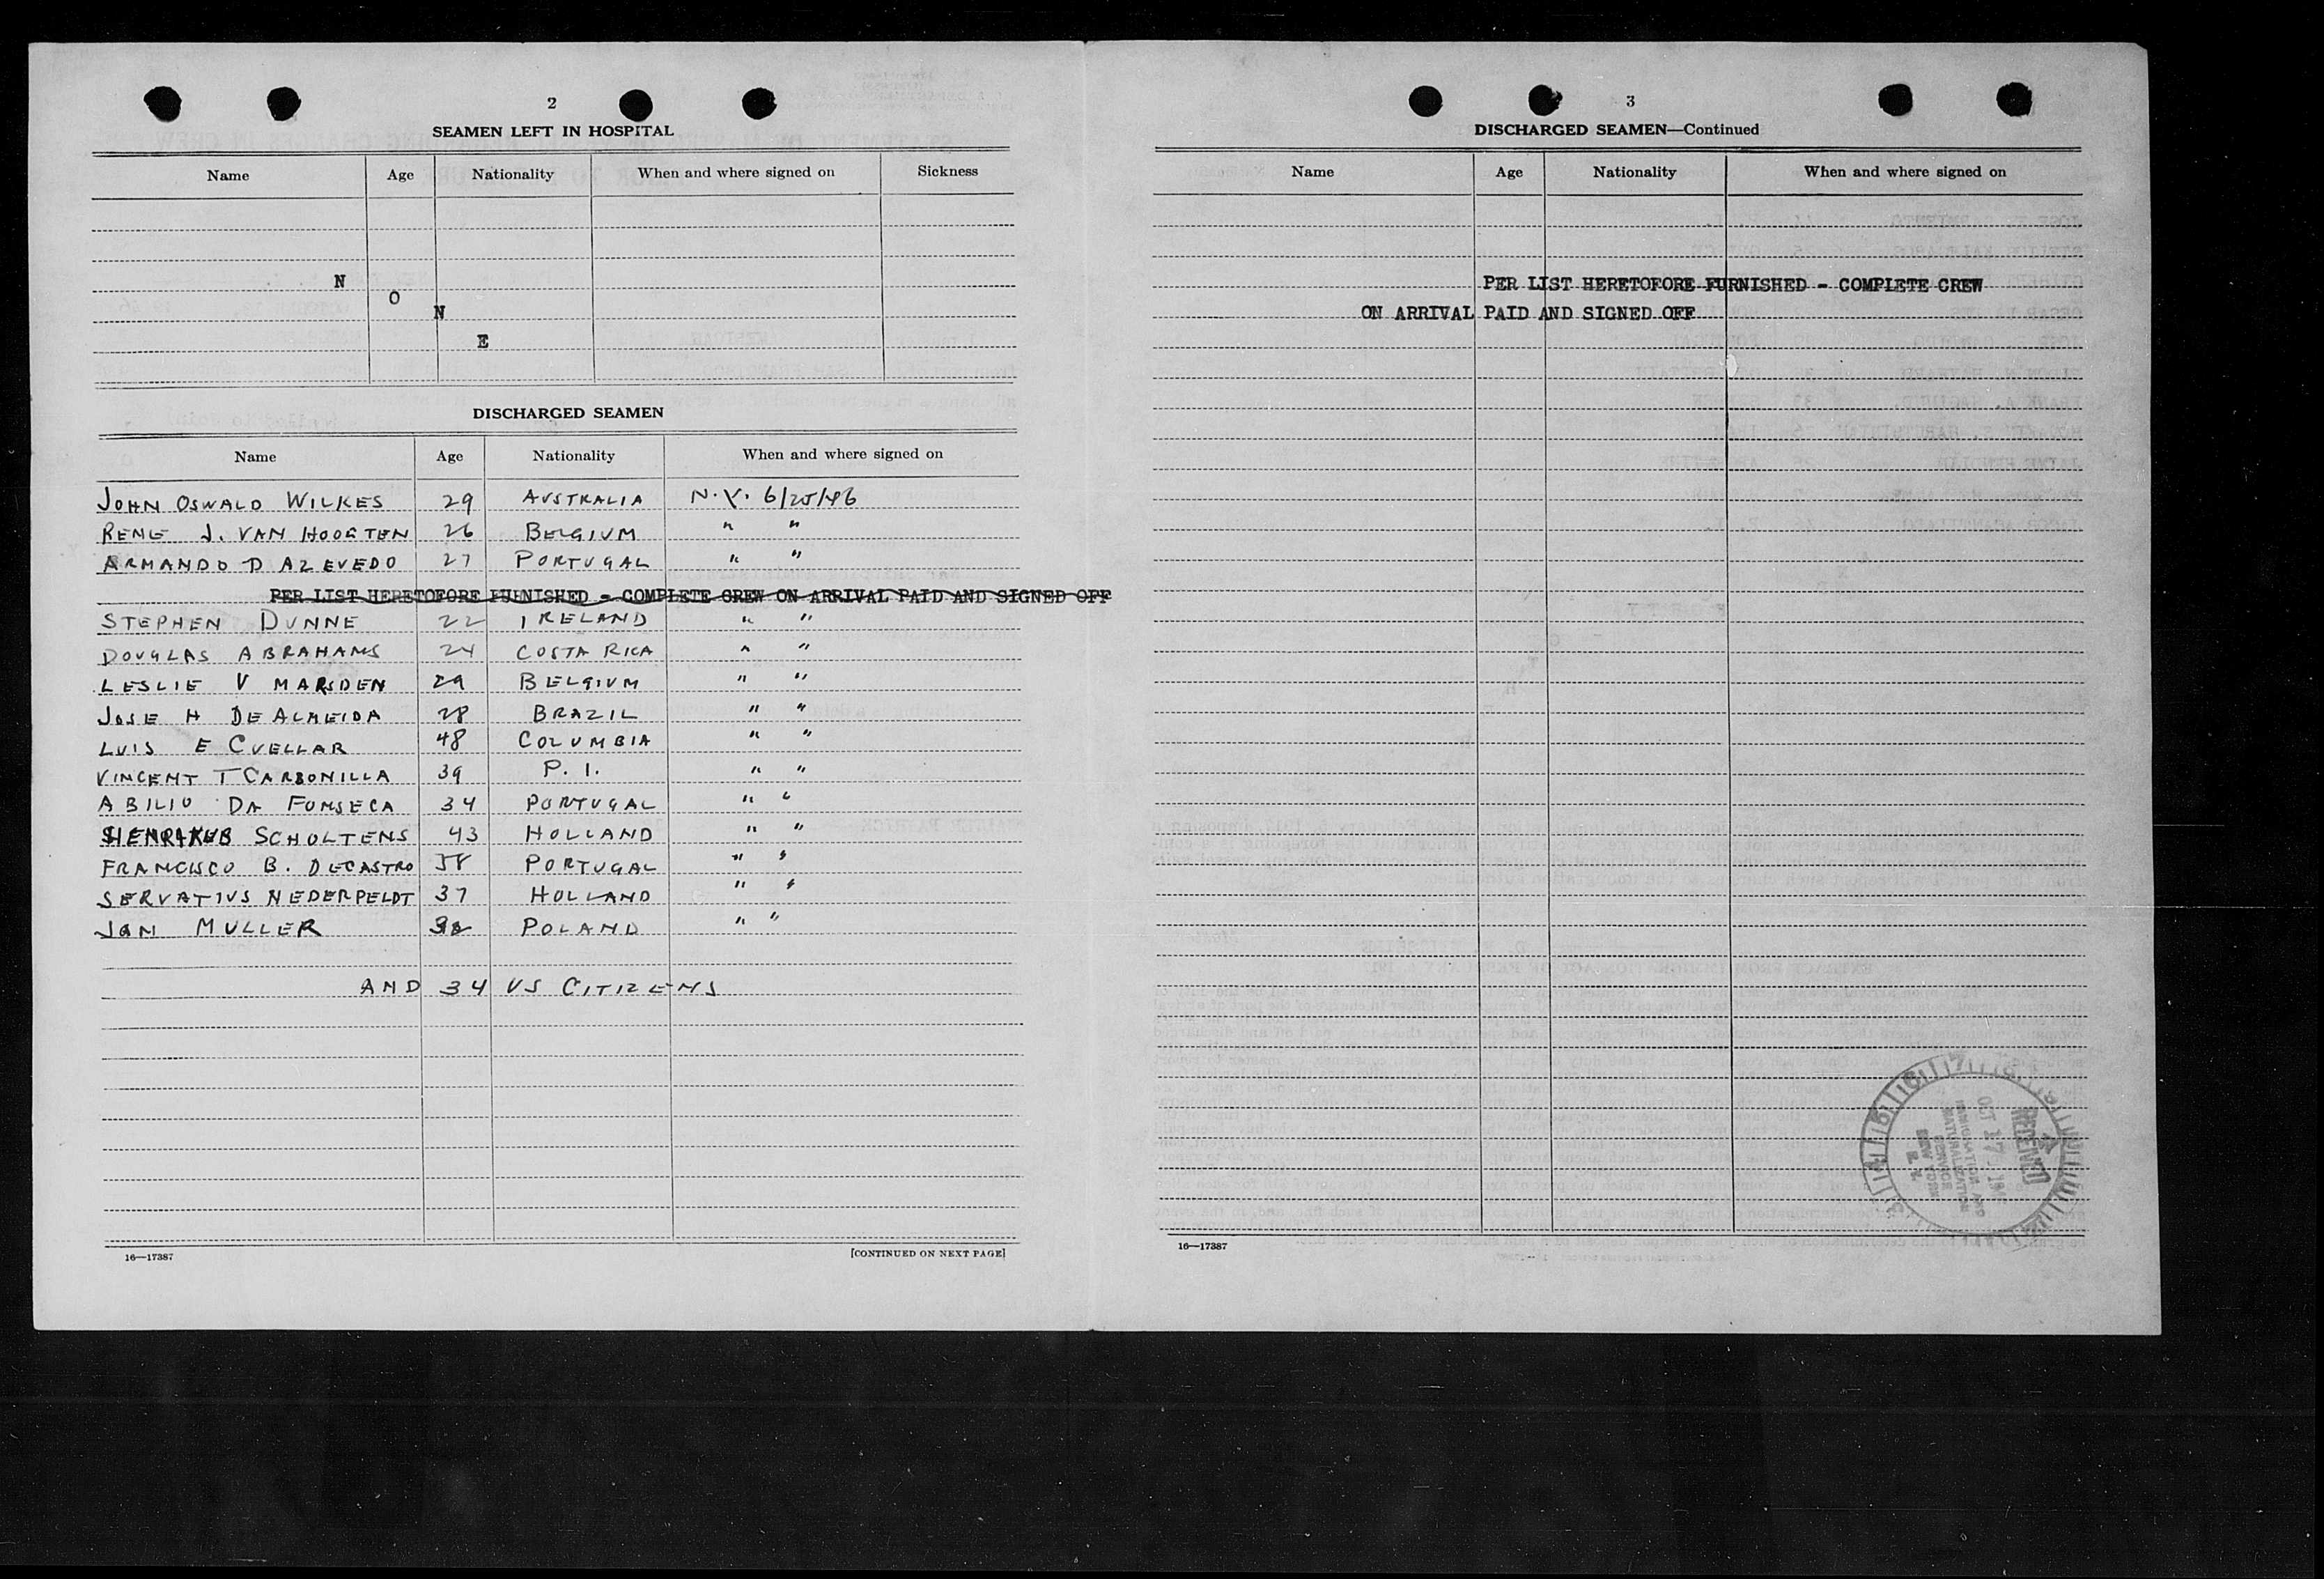 2
SEAMEN LEFT IN HOSPITAL
Name Age Nationality When and where signed on Sickness
N
O
N
E
DISCHARGED SEAMEN
Name Age Nationality When and where signed on
JOHN OSWALD WILKES 29 AUSTRALIA N.Y. 6/25/46
RENE J. VAN HOOGTEN 26 BELGIUM " "
ARMANDO D AZEVEDO 27 PORTUGAL " "
PER LIST HERETOFORE FURNISHED - COMPLETE CREW ON ARRIVAL PAID AND SIGNED OFF
STEPHEN DUNNE 22 IRELAND " "
DOUGLAS ABRAHAMS 24 COSTA RICA " "
LESLIE V MARSDEN 29 BELGIUM " "
JOSE H DE ALMEIDA 28 BRAZIL " "
LUIS E CUELLAR 48 COLUMBIA " "
VINCENT T CARBONILLA 39 P. I. " "
ABILIO DA FONSECA 34 PORTUGAL " "
SCHOLTENS 43 HOLLAND " "
FRANCISCO B. DECASTRO 38 PORTUGAL " "
SERVATIUS NEDERPELDT 37 HOLLAND " "
JAN MULLER POLAND " "
AND 34 US CITIZENS
16—17387 [CONTINUED ON NEXT PAGE]
3
DISCHARGED SEAMEN—Continued
Name Age Nationality When and where signed on
PER LIST HERETOFORE FURNISHED - COMPLETE CREW
ON ARRIVAL PAID AND SIGNED OFF
RECEIVED
OCT 17
IMMIGRATION AND
NATURALIZATION
SERVICE
NEW YORK
N. Y.
16—17387